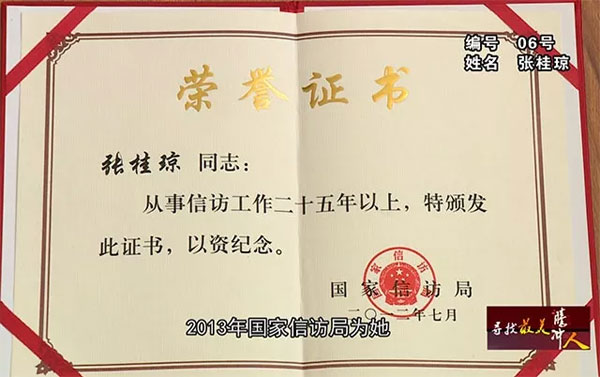 编号 06号
姓名 张桂琼
荣誉证书
张桂琼 同志：
从事信访工作二十五年以上，特颁发
此证书，以资纪念。
国家信访局
国家信访局
二〇一二年七月
2013年国家信访局为她
寻找最美腾冲人